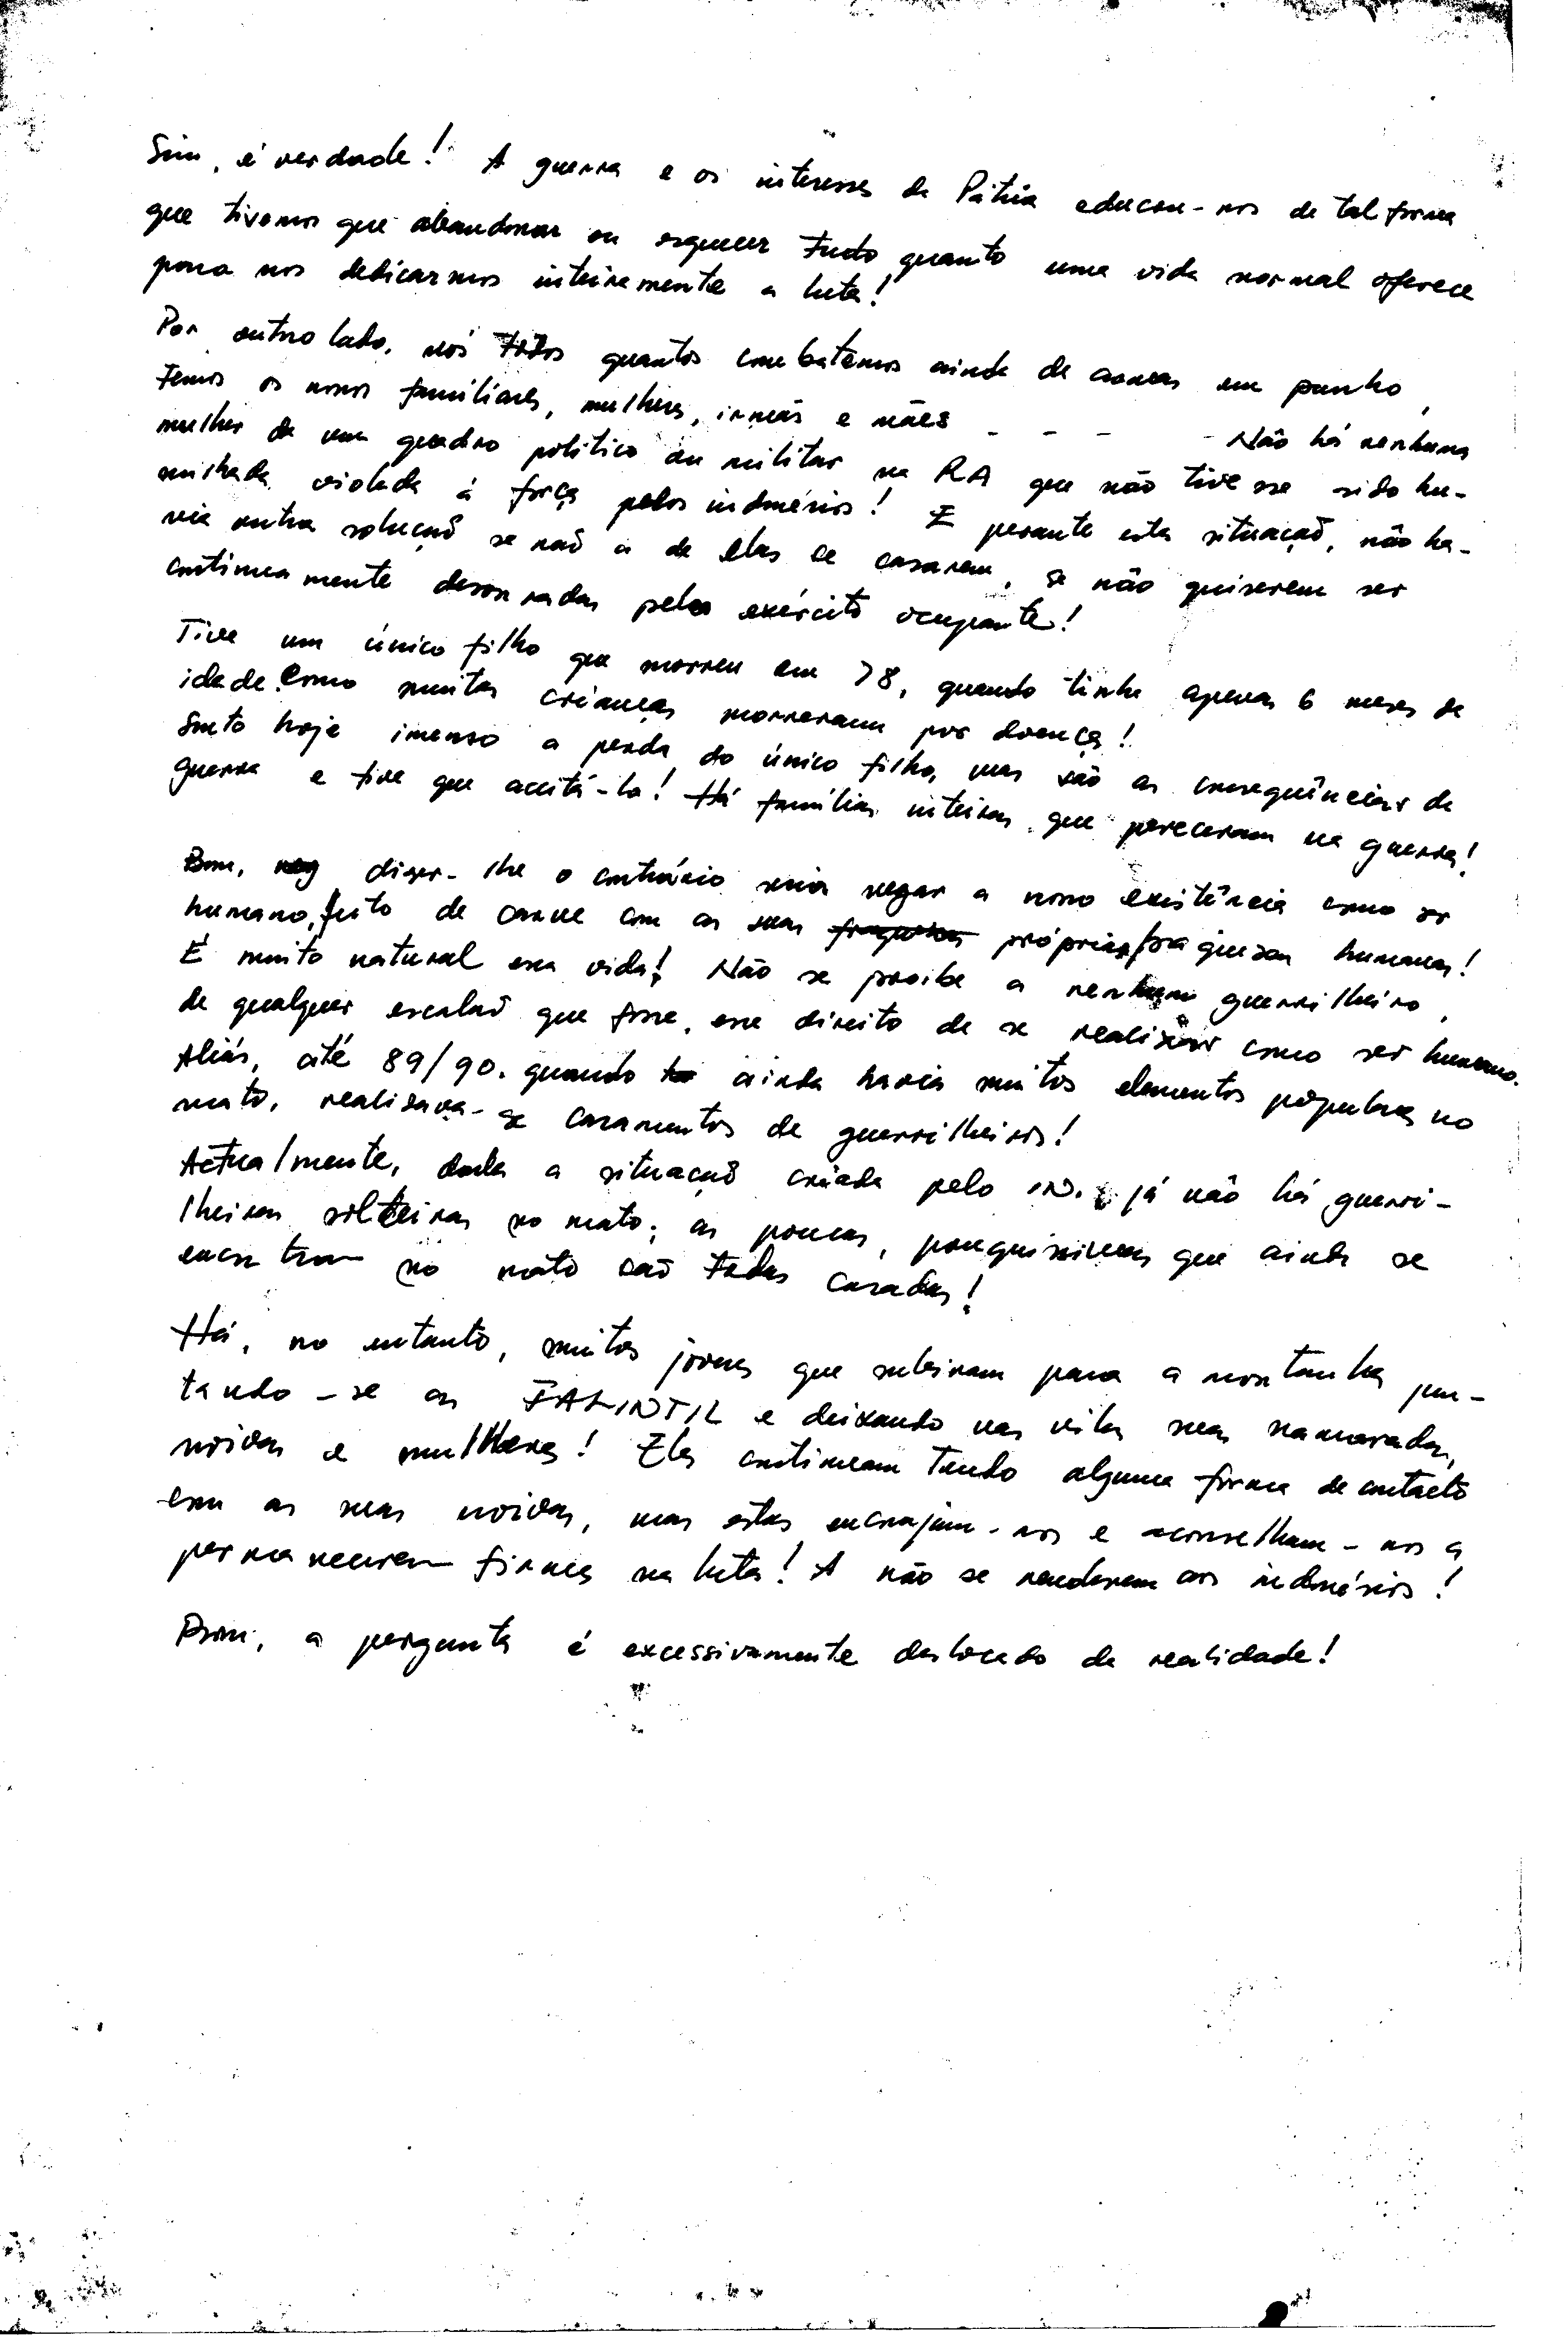 Sim, é verdade! A guerra e os interesses da Pátria educou-nos de tal forma
que tivemos que abandonar ou esquecer tudo quanto uma vida normal oferece
para nos dedicarmos inteiramente a luta!
Por outro lado, nós todos quantos combatemos ainda de armas em punho,
temos os nossos familiares, mulheres, irmãs e mães - - - Não há nenhuma
mulher de um quadro político ou militar na RA que não tivesse sido hu-
milhada violada à força pelos indonésios! E perante esta situação, não ha-
via outra solução se não a de elas se casarem, se não quiserem ser
continuamente desonradas pelo exército ocupante!
Tive um único filho que morreu em 78, quando tinha apenas 6 meses de
idade. Como muitas crianças morreram por doença!
Sinto hoje imenso a perda do único filho, mas são as consequências da
guerra e tive que aceitá-la! Há famílias inteiras que pereceram na guerra!
Bom, dizer-lhe o contrário seria negar a nossa existência como ser
humano, feito de carne com as suas próprias fraquezas humanas!
É muito natural essa vida! Não se proibe a nenhum guerrilheiro,
de qualquer escalão que fosse, esse direito de se realizar como ser humano.
Aliás, até 89/90. quando ainda havia muitos elementos populares no
mato, realizava-se casamentos de guerrilheiros!
Actualmente, dada a situação criada pelo IN. já não há guerri-
lheiras solteiras no mato; as poucas, pouquíssimas que ainda se
encontram no mato são todas casadas!
Há, no entanto, muitos jovens que subiram para a montanha jun-
tando-se as FALINTIL e deixando nas vilas suas namoradas,
noivas e mulheres! Eles continuam tendo alguma forma de contacto
com as suas noivas, mas estas encorajam-nos e aconselham-nos a
permanecerem firmes na luta! A não se renderem aos indonésios!
Bom, a pergunta é excessivamente deslocada da realidade!